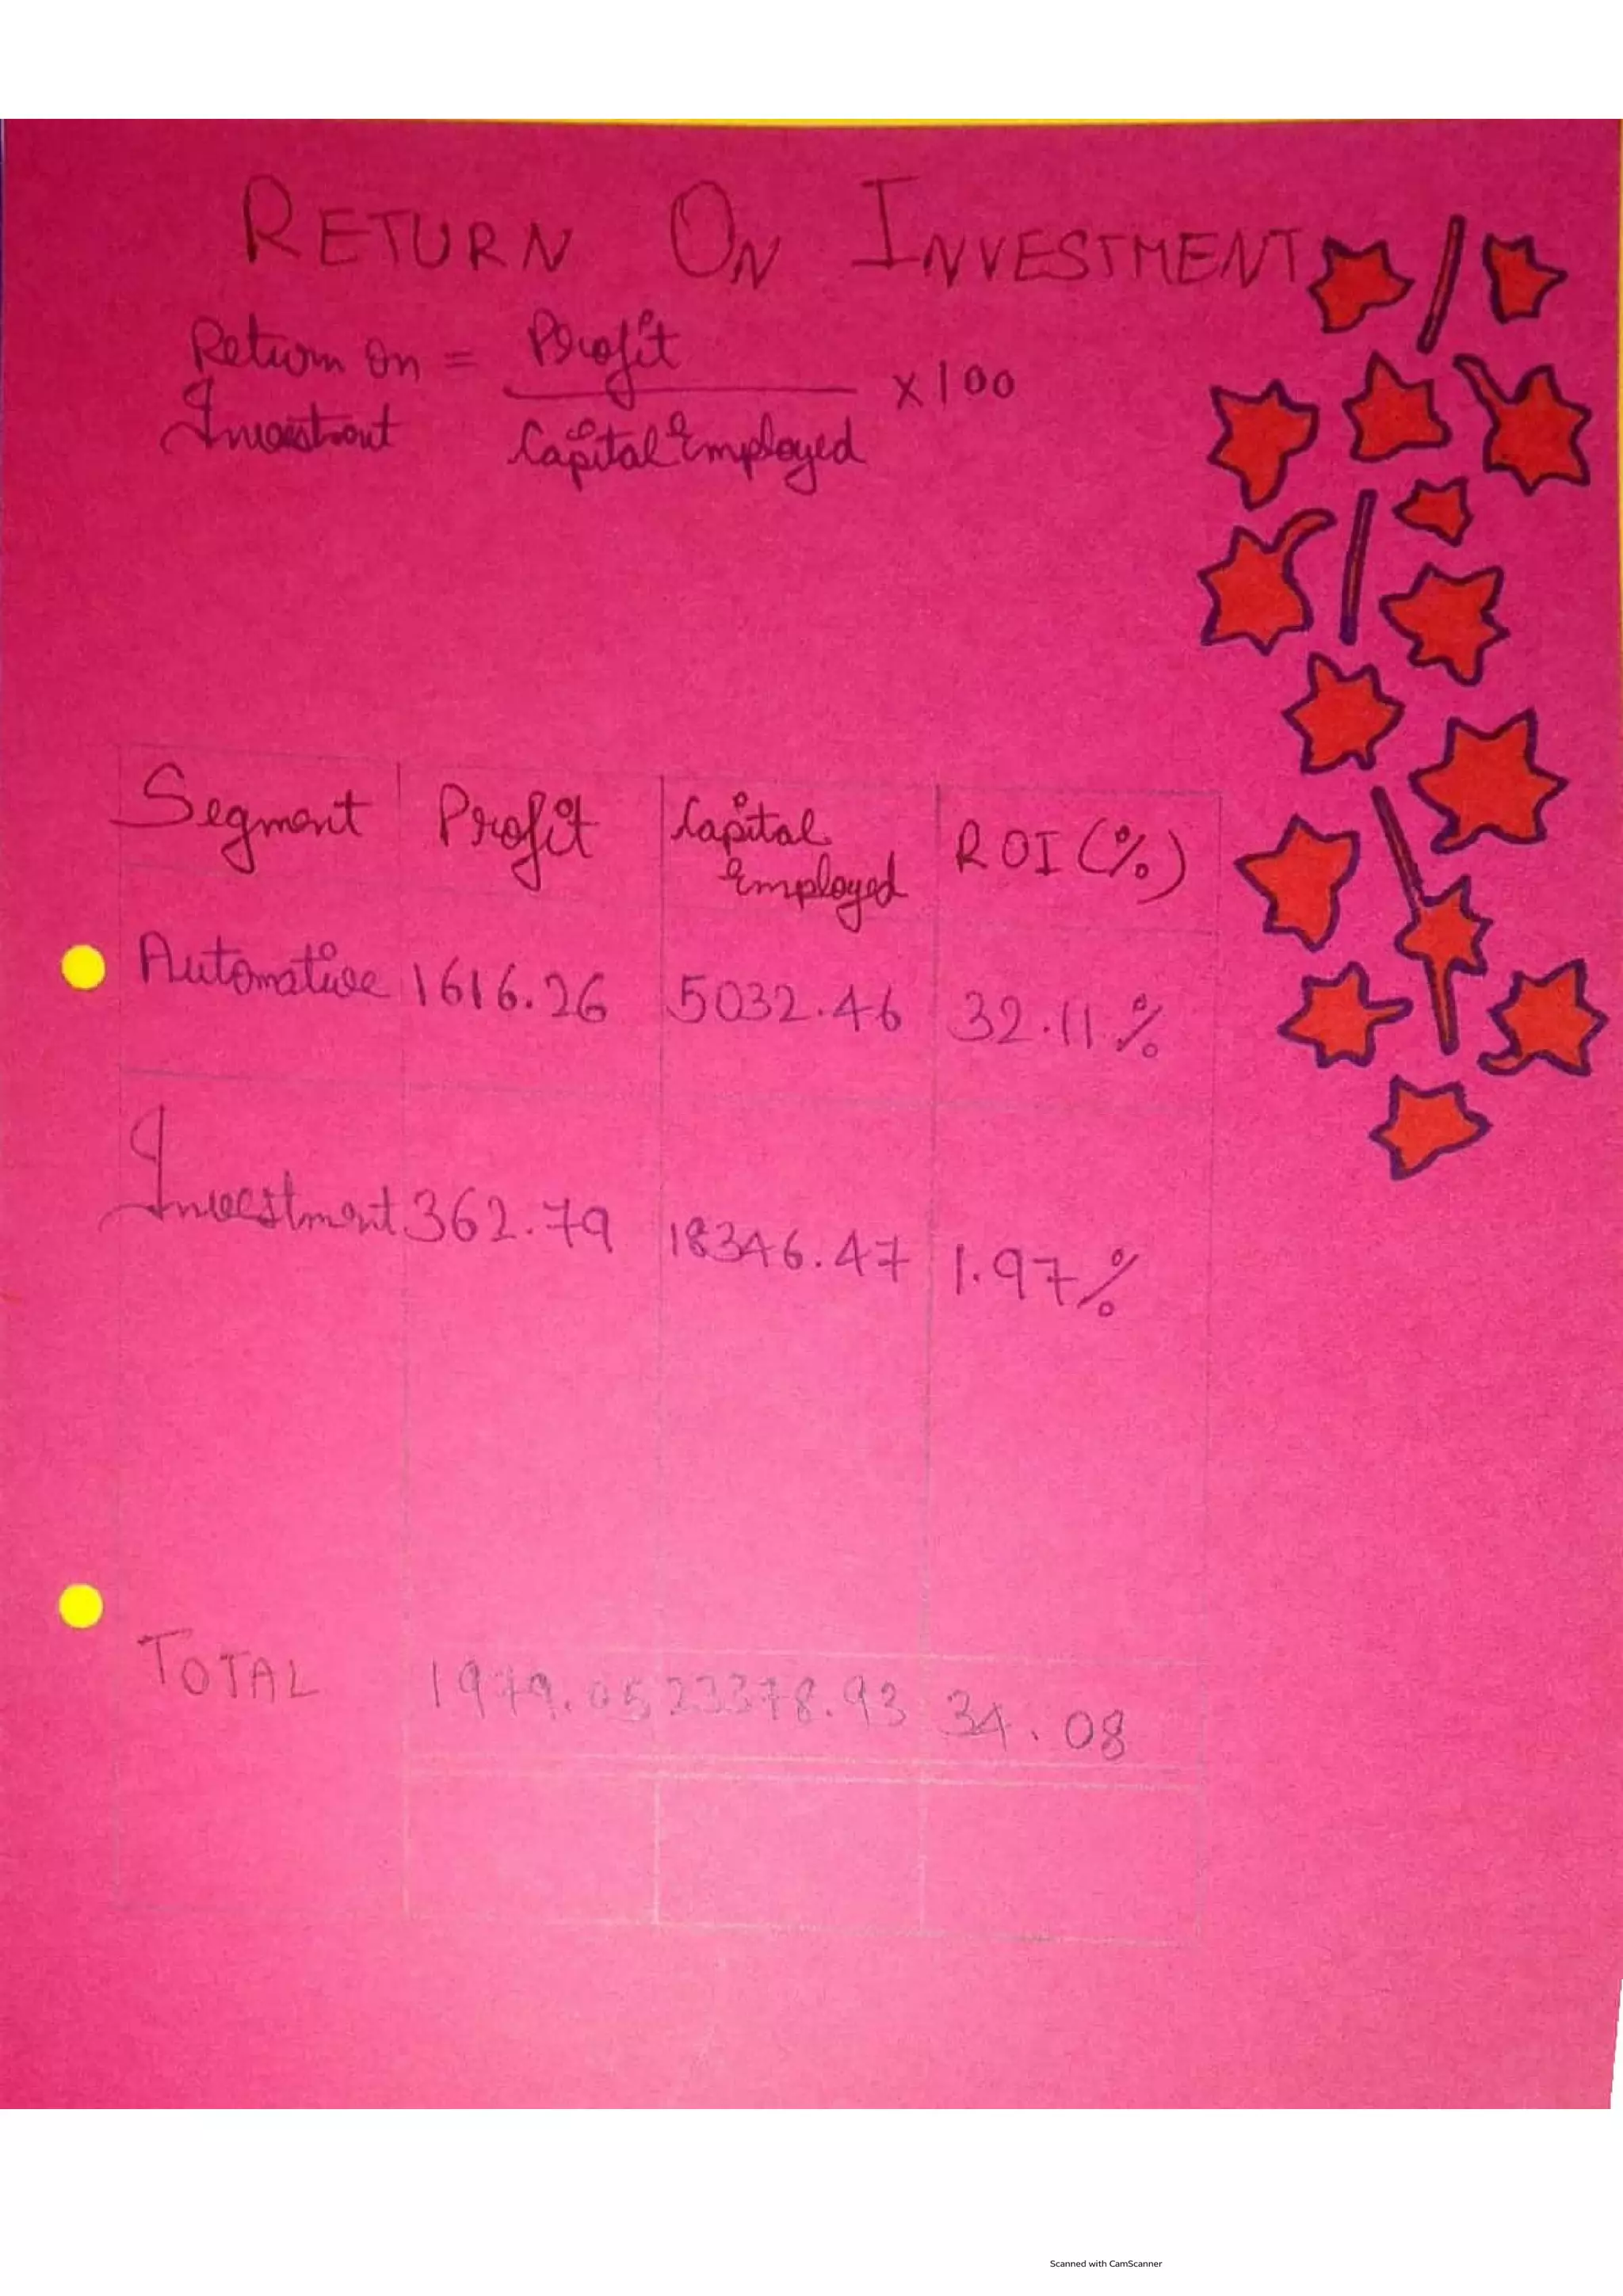 RETURN ON INVESTMENT
Return on = Profit
Investment Capital Employed ×100
Segment Profit Capital Employed ROI (%)
Automative 1616.26 5032.46 32.11%
Investment 362.79 18346.47 1.97%
TOTAL 1979.05 23378.93 34.08
Scanned with CamScanner